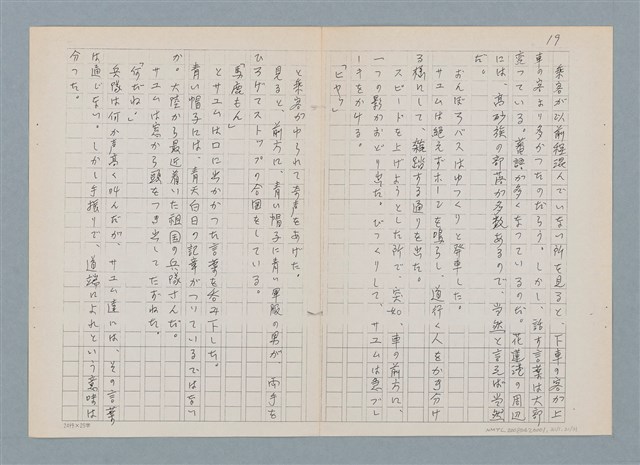 19
乗客が以前程混んでいない所を見ると、下車の客が上
車の客より多かつたのだろう。しかし、話す言葉は大部
変つている。蕃語が多くなつているのだ。花蓮港の周辺
には、高砂族の部落が多数あるので、当然と言えば当然
だ。
おんぼろバスはゆつくりと発車した。
サユムは絶えずホーンを鳴らし、道行く人をかき分け
る様にして、雑踏する通りを出た。
スピードを上げようとした所で、突如、車の前方に、
一つの影がおどり出た。びつくりして、サユムは急ブレ
ーキをかける。
「ヒヤッ」
と乗客がゆられて奇声をあげた。
見ると、前方に、青い帽子に青い軍服の男が両手を
ひろげてストップの合図をしている。
「馬鹿もん」
とサユムは口に出かかつた言葉を呑み下した。
青い帽子には、青天白日の記章がついているではない
か。大陸から最近着いた祖国の兵隊さんだ。
サユムは窓から頭をつき出してたずねた。
「何だね」
兵隊は何か声高く叫んだが、サユム達には、その言葉
は通じない。しかし手振りで、道端によれという意味は
分つた。